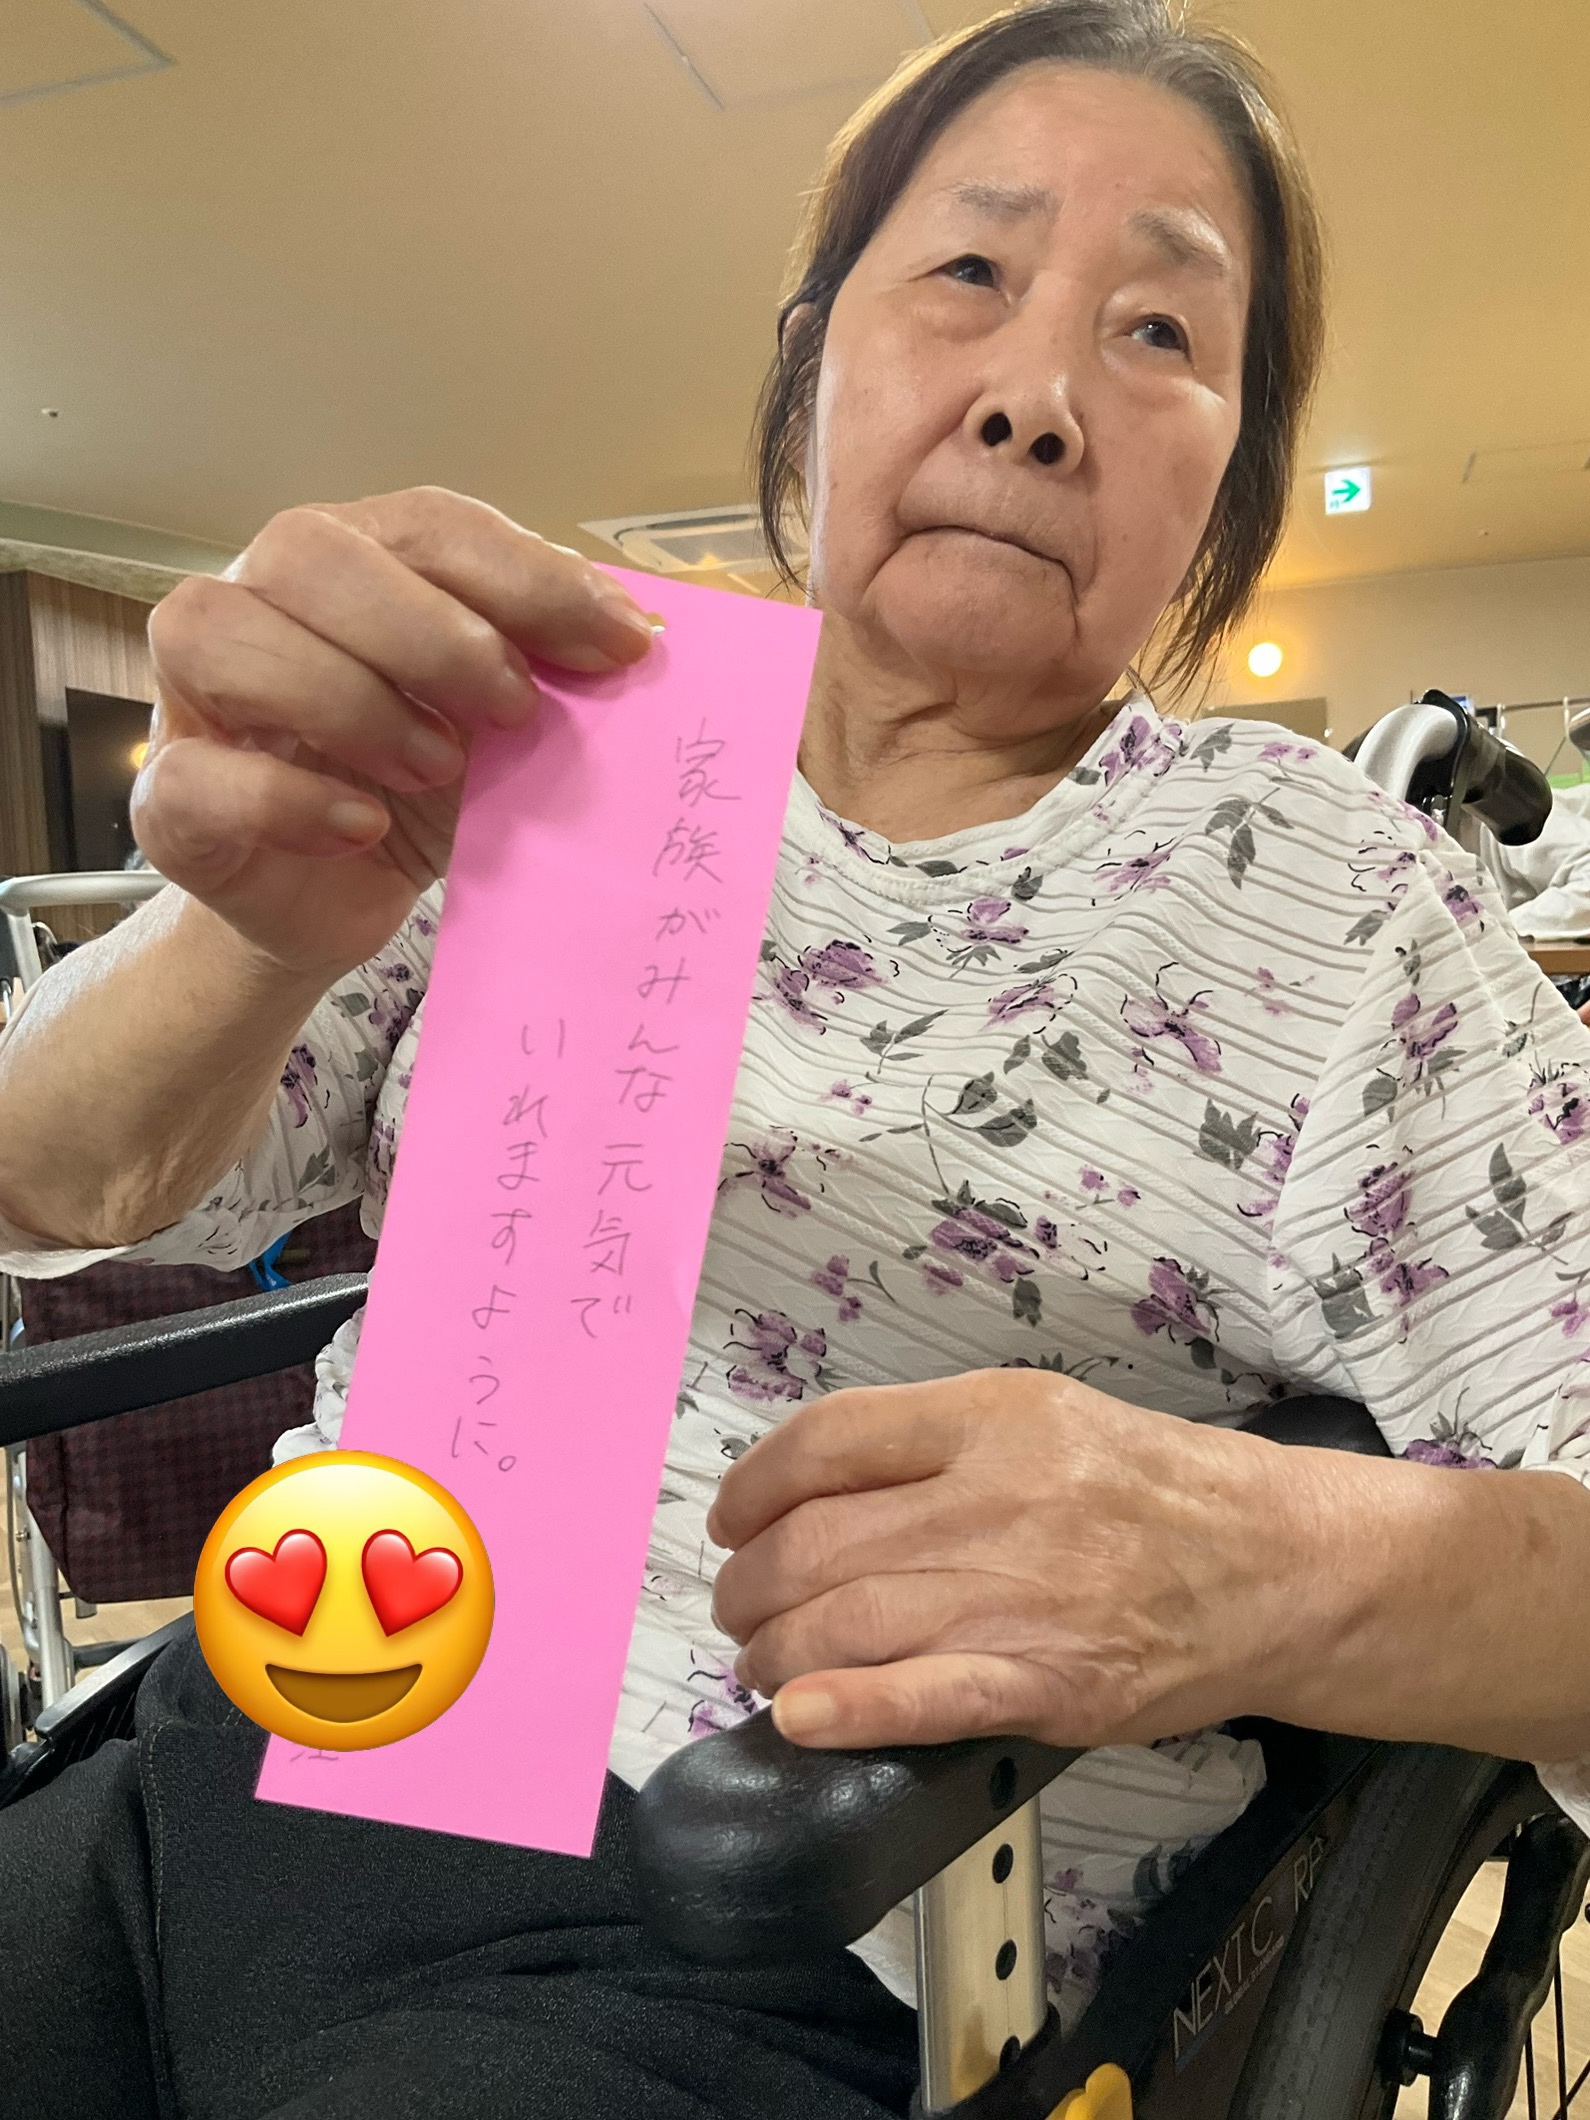 家族がみんな元気で
いれますように。
NEXT C RE